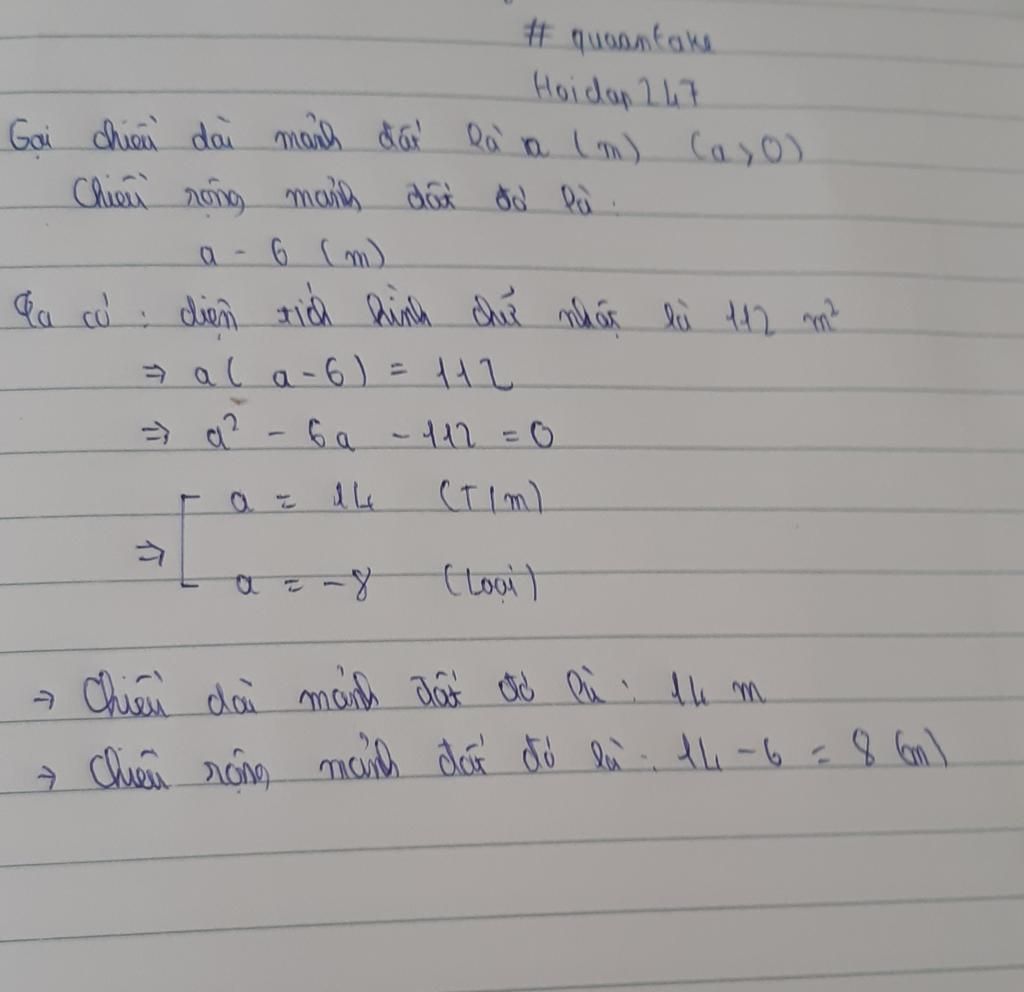 # quaantake
Hoidap247
Gọi chiều dài mảnh đất là a (m) (a > 0)
Chiều rộng mảnh đất đó là :
a - 6 (m)
Ta có : diện tích hình chữ nhật là 112 m²
⇒ a( a - 6) = 112
⇒ a² - 6a - 112 = 0
⇒ [ a = 14 (T/m)
a = -8 (Loại)
→ Chiều dài mảnh đất đó là : 14 m
→ Chiều rộng mảnh đất đó là : 14 - 6 = 8 (m)